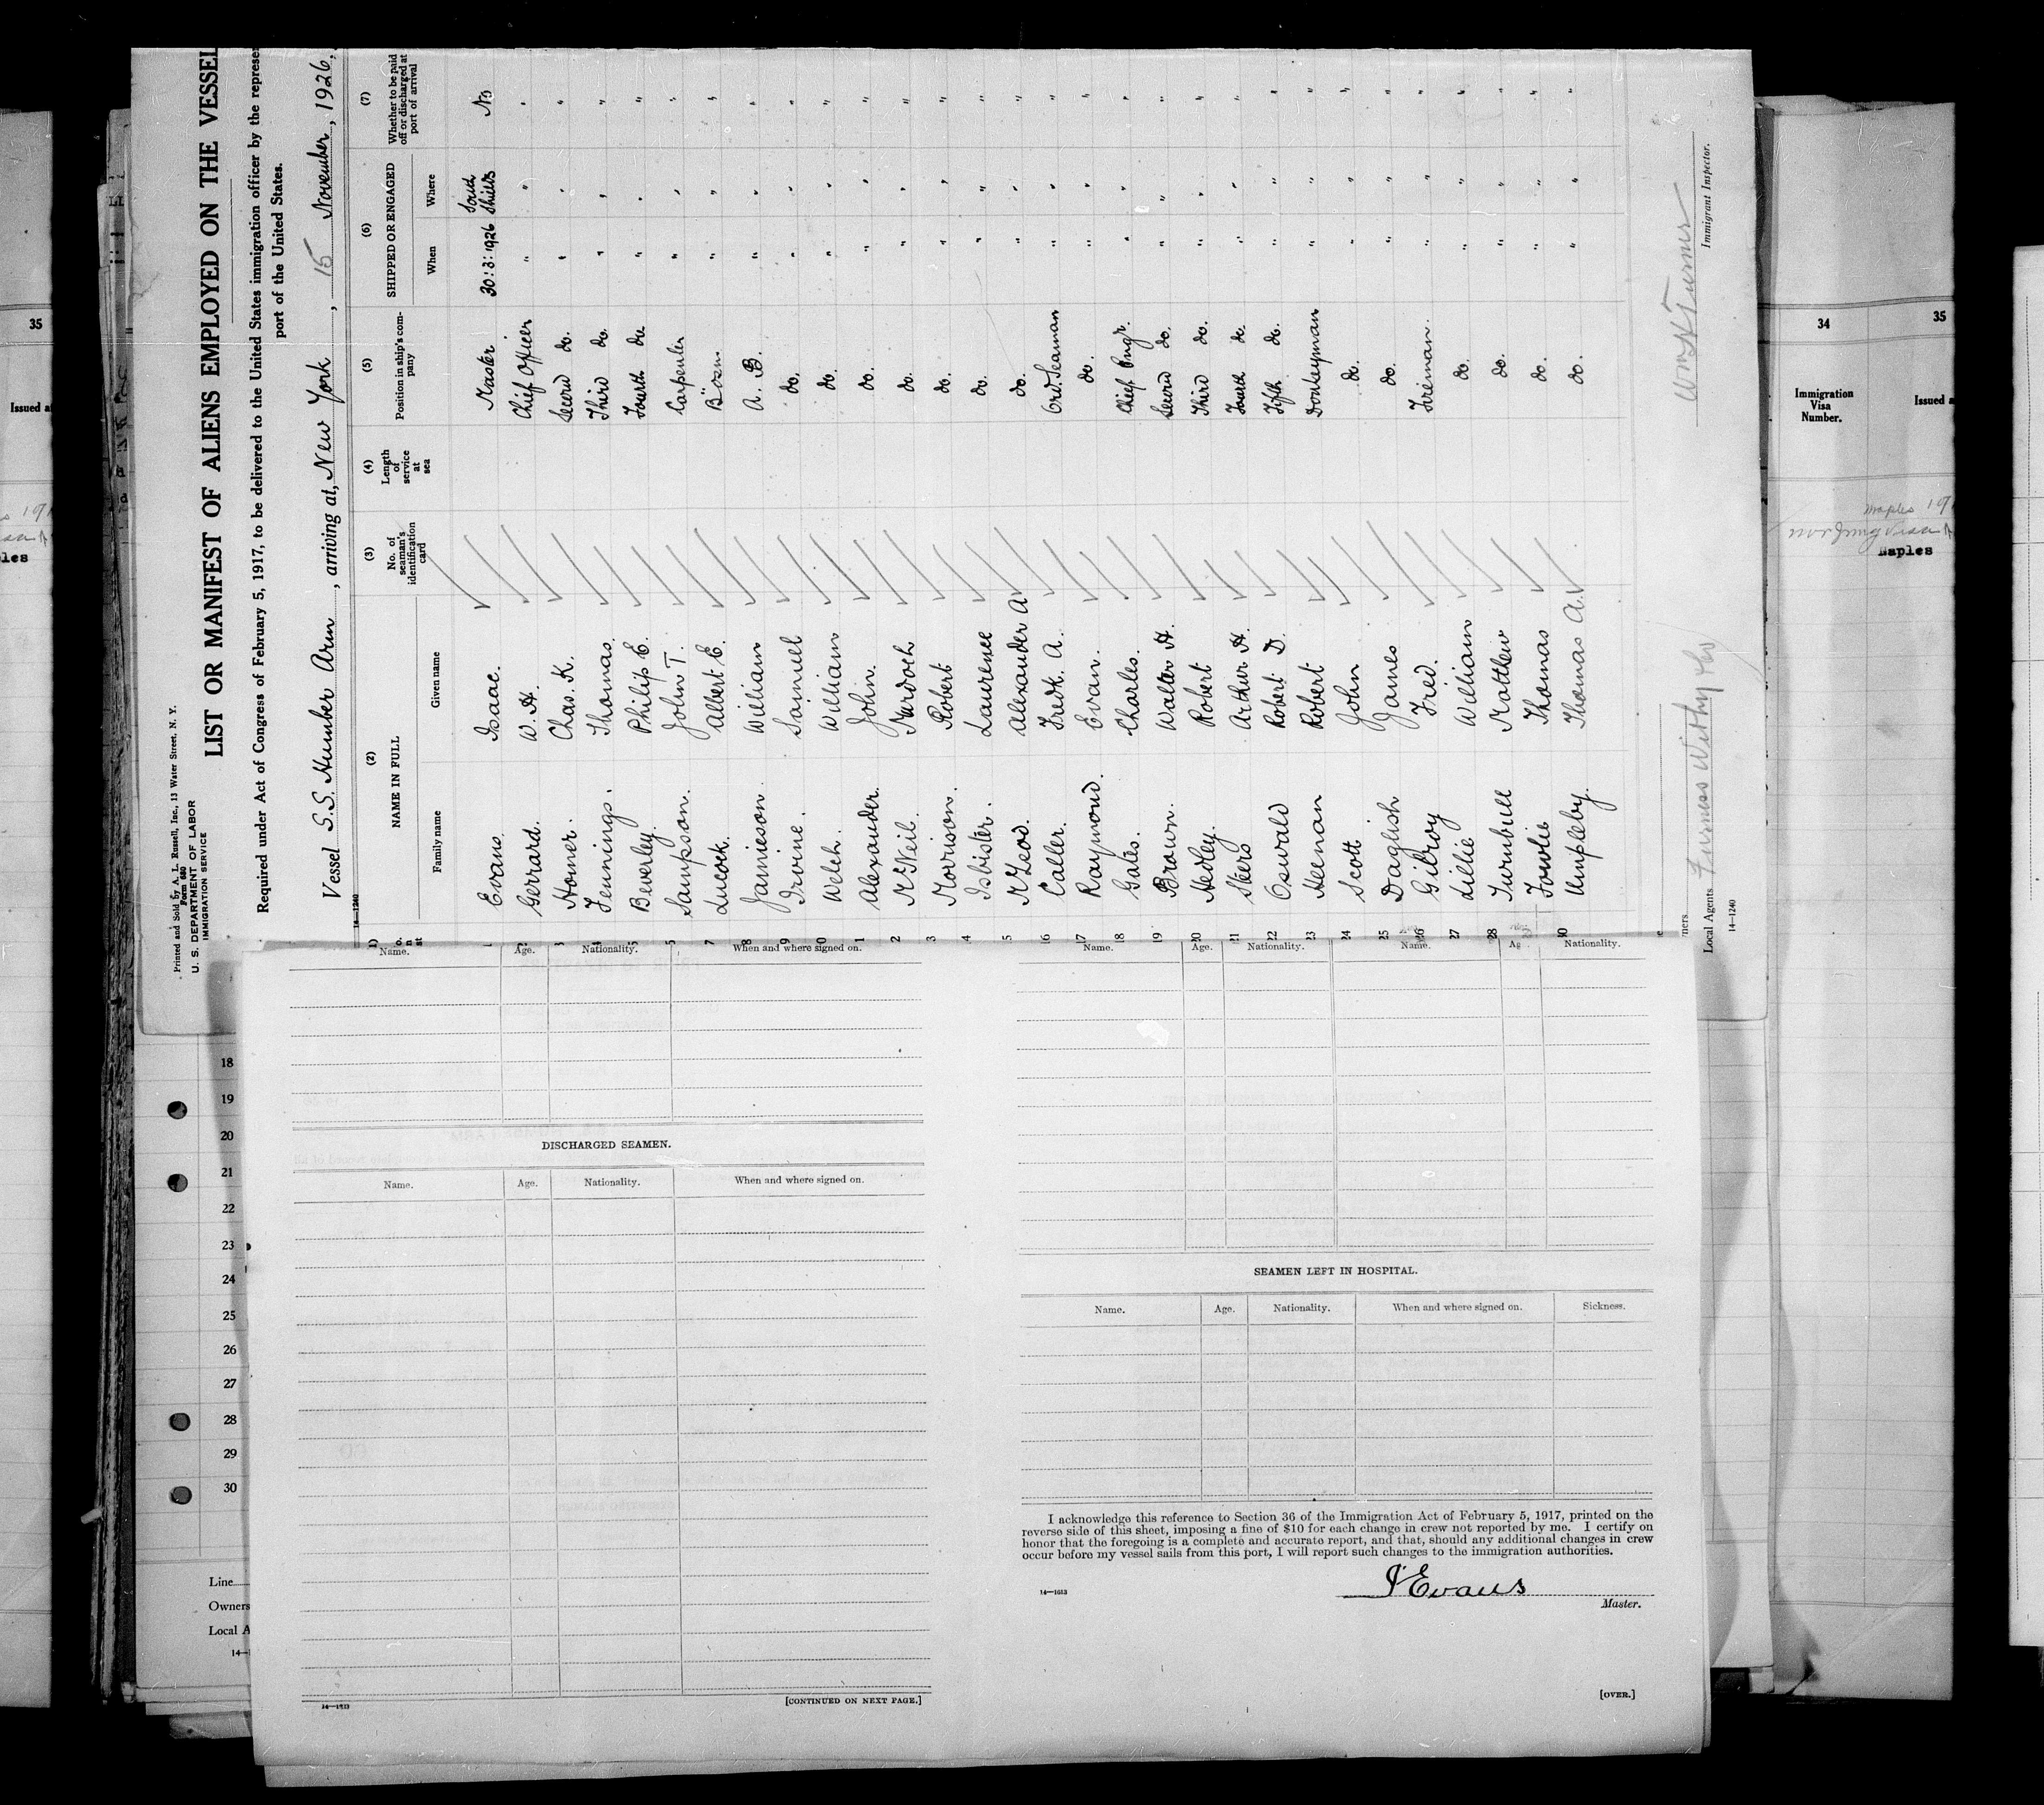 Printed and Sold by A. L. Russell, Inc., 13 Water Street, N. Y.
Form 680
U. S. DEPARTMENT OF LABOR
IMMIGRATION SERVICE
LIST OR MANIFEST OF ALIENS EMPLOYED ON THE VESSEL
Required under Act of Congress of February 5, 1917, to be delivered to the United States immigration officer by the represen
port of the United States.
Vessel S.S. Humber Arm, arriving at, New York, 15 November, 1926,
14—1240
(2) (3) (4) (5) (6) (7)
NAME IN FULL No. of seaman's identification card Length of service at sea Position in ship's company SHIPPED OR ENGAGED Whether to be paid off or discharged at port of arrival
Family name Given name When Where
1 Evans. Isaac. Master 30:3:1926 South Shields No
2 Gerrard. W. H. Chief Officer " " "
3 Homer. Chas. K. Second do. " " "
4 Jennings. Thomas. Third do. " " "
5 Beverley. Philip E. Fourth do " " "
Sampson. John T. Carpenter " " "
7 Lucock. Albert E. Bosn. " " "
8 Jamieson. William A. B. " " "
9 Irvine. Samuel do. " " "
0 Welch. William do. " " "
1 Alexander. John. do. " " "
2 McNeil. Murdoch do. " " "
3 Morrison. Robert do. " " "
4 Isbister. Laurence do. " " "
5 McLeod. Alexander A do. " " "
16 Caller. Fredk. A. Ord. Seaman " " "
17 Raymond. Evan. do. " " "
18 Gates. Charles. Chief Engr. " " "
19 Brown. Walter H. Second do. " " "
20 Hedley. Robert Third do. " " "
21 Skers Arthur H. Fourth do. " " "
22 Oswald Robert D. Fifth do. " " "
23 Heenan Robert Donkeyman " " "
24 Scott John do. " " "
25 Daglish James do. " " "
26 Gilroy Fred. Fireman. " " "
27 Lillie William do. " " "
28 Turnbull Matthew do. " " "
Fowlie Thomas do. " " "
30 Umpleby. Thomas A. do. " " "
Immigrant Inspector.
Local Agents Furness Withy
14—1240
Name. Age. Nationality. When and where signed on.
DISCHARGED SEAMEN.
Name. Age. Nationality. When and where signed on.
[CONTINUED ON NEXT PAGE.]
Name. Age. Nationality. Name. Nationality.
SEAMEN LEFT IN HOSPITAL.
Name. Age. Nationality. When and where signed on. Sickness.
I acknowledge this reference to Section 36 of the Immigration Act of February 5, 1917, printed on the
reverse side of this sheet, imposing a fine of $10 for each change in crew not reported by me. I certify on
honor that the foregoing is a complete and accurate report, and that, should any additional changes in crew
occur before my vessel sails from this port, I will report such changes to the immigration authorities.
14—1613
I Evans
Master.
[OVER.]
18
19
20
21
22
23
24
25
26
27
28
29
30
Line
Owners
Local A
35
Issued a
34
Immigration
Visa
Number.
35
Issued a
Naples